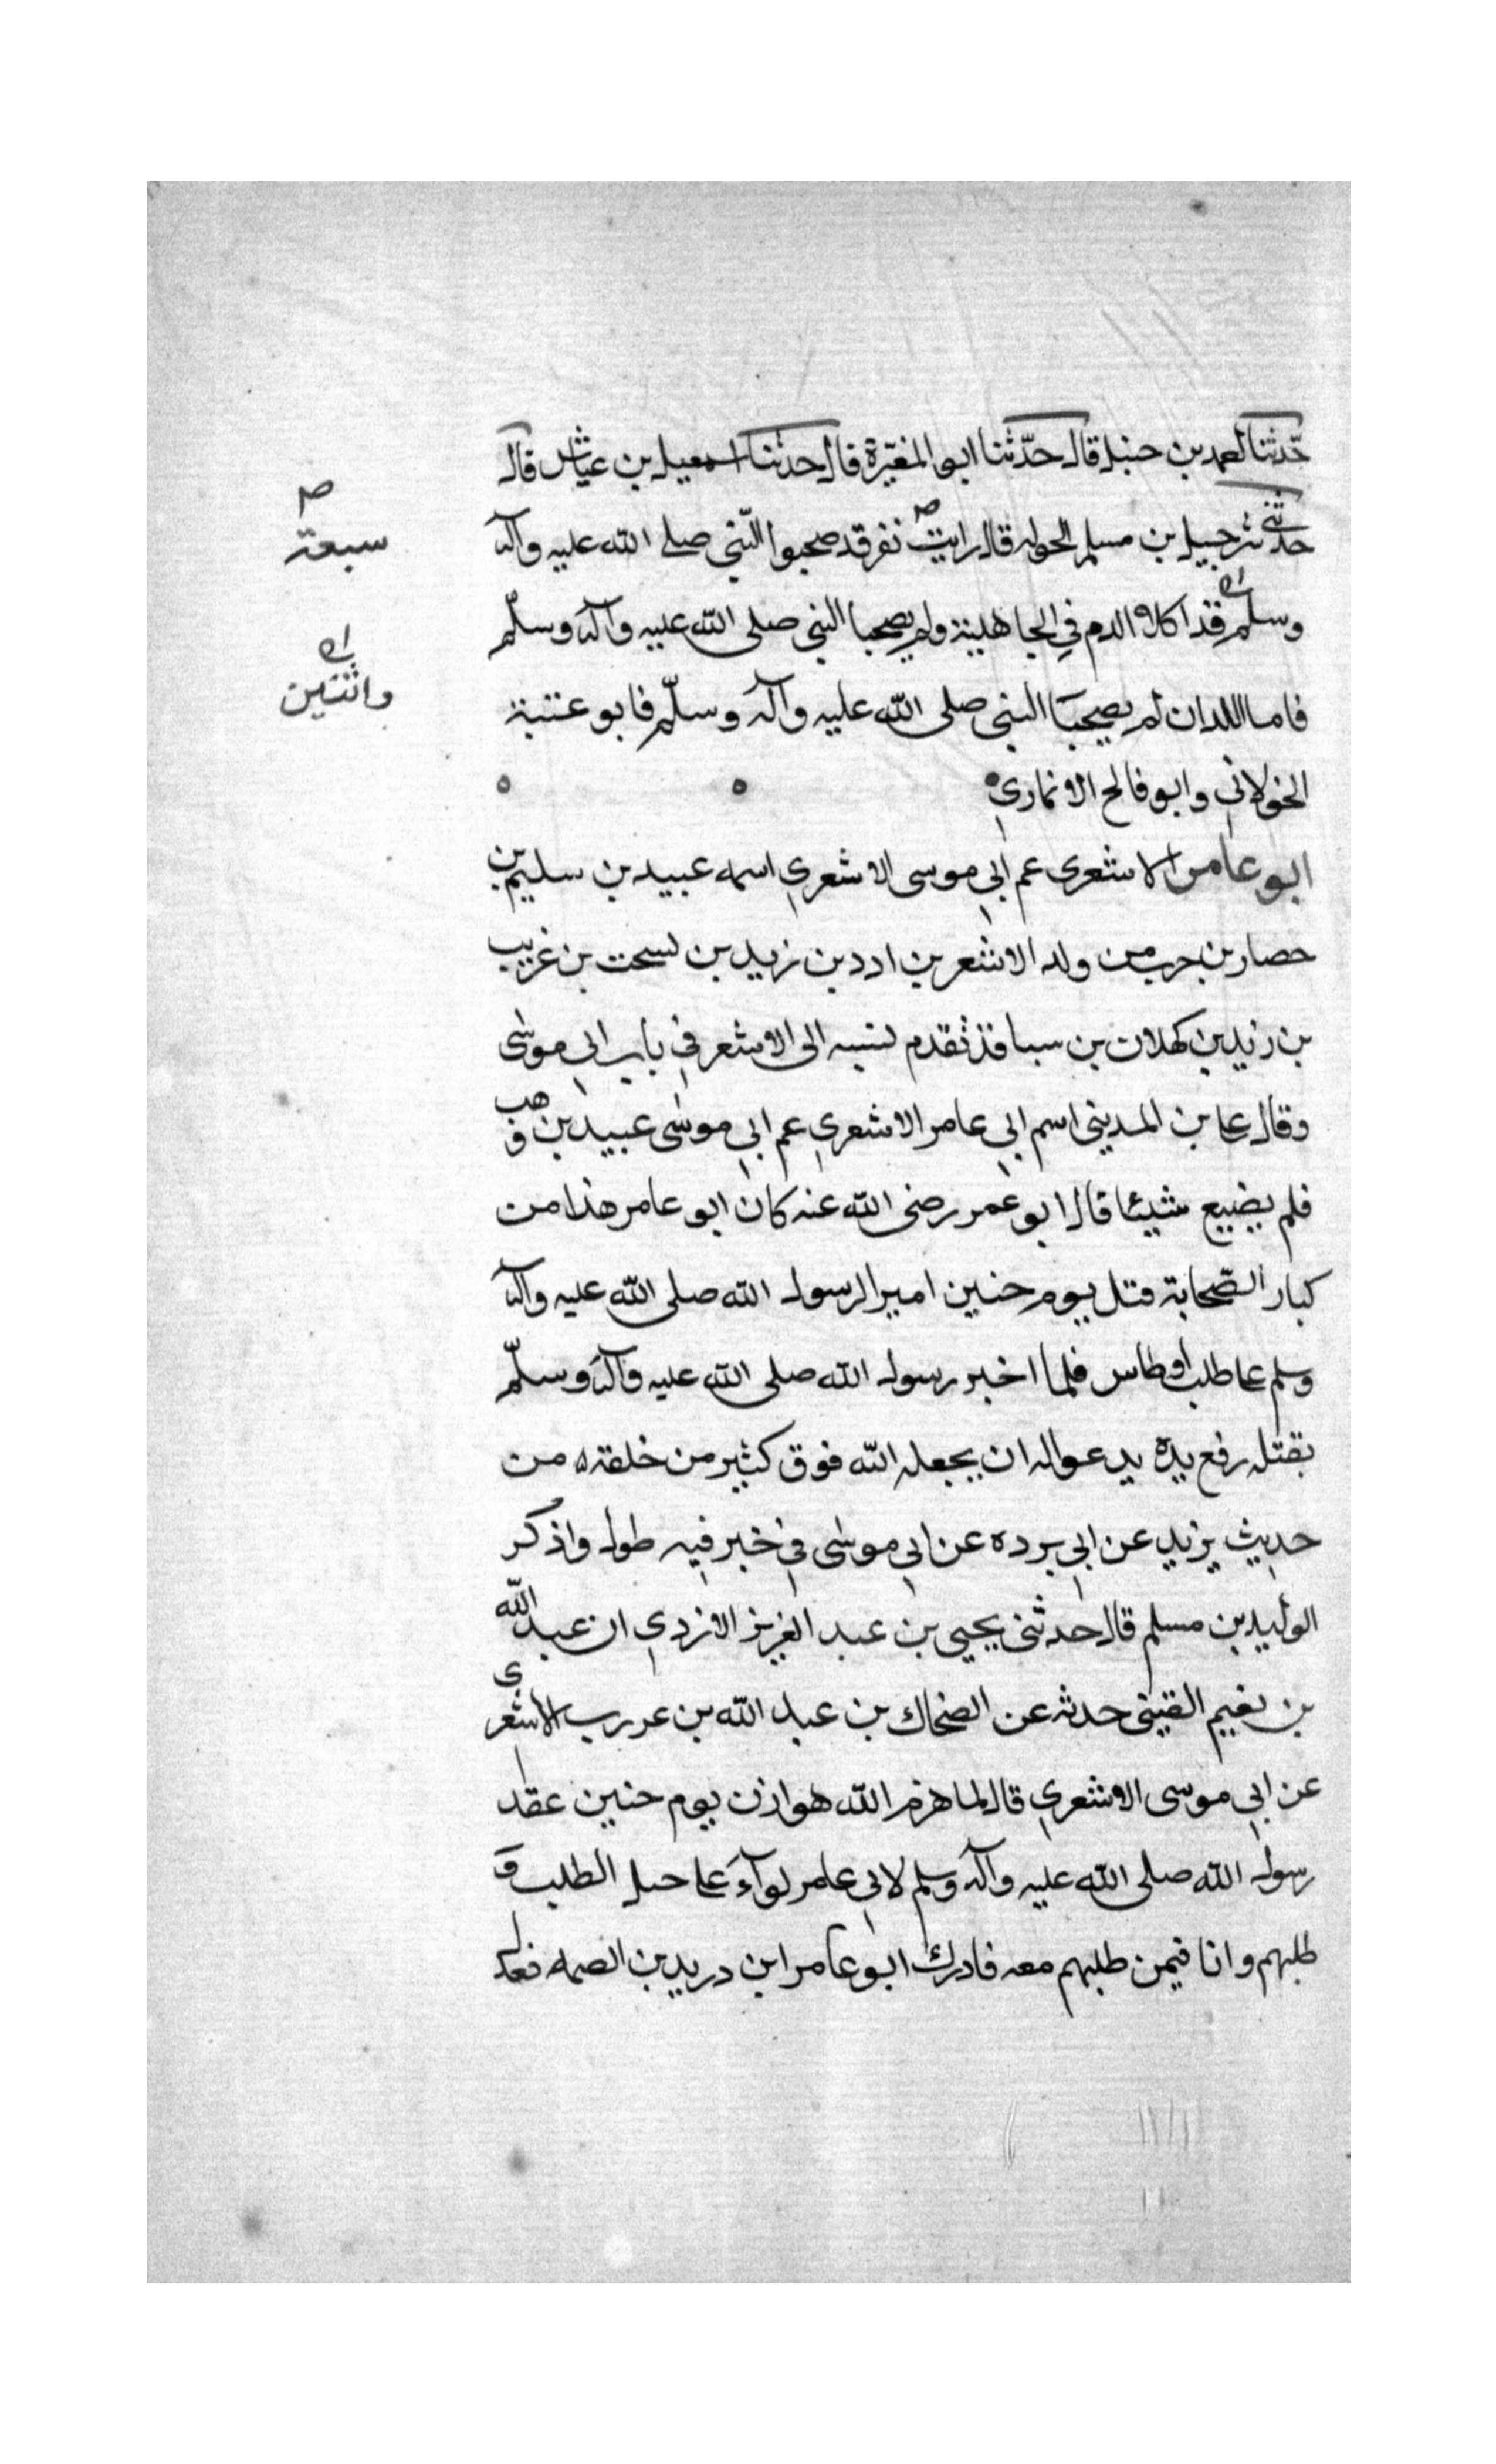 حدّثنا احمد بن حنبل قال حدّثنا ابو المغيرة قال حدثنا اسمعيل بن عياش قال
حدثني شرحبيل بن مسلم الخولا قال رايت نفر قد صحبوا النبي صلى الله عليه وآله
سبعة
وسلم قد اكلا الدم في الجاهلية ولم يصحبا النبي صلى الله عليه وآله وسلّم
واثنين
فاما اللدان لم يصحبا النبي صلى الله عليه وآله وسلّم فابو عنبة
الخولاني وابو فالح الانماري
ابو عامر الاشعرى عم ابي موسى الاشعري اسمه عبيد بن سليم بن
حصار بن حرب من ولد الاشعر بن ادد بن زيد بن يشحب بن غريب
بن زيد بن كهلان بن سبا قد تقدم نسبه الى الاشعر في باب ابي موسى
وقال على بن المديني اسم ابي عامر الاشعري عم ابي موسى عبيد بن وهب
فلم يضيع شيئا قال ابو عمر رضى الله عنه كان ابو عامر هذا من
كبار الصّحابة قتل يوم حنين اميرا لرسول الله صلى الله عليه وآله
وسلم على طلب اوطاس فلما اخبر رسول الله صلى الله عليه وآله وسلّم
بقتله رفع يده يدعو له ان يجعله الله فوق كثير من خلقه من
حديث يزيد عن ابي برده عن ابي موسى في خبر فيه طول واذكر
الوليد بن مسلم قال حدثنى يحيى بن عبد العزيز الازدي ان عبد الله
بن نعيم القينى حدثه عن الضحاك بن عبد الله بن عررب الاشعرى
عن ابي موسى الاشعري قال لما هزم الله هوازن يوم حنين عقد
رسول الله صلى الله عليه وآله وسلم لابي عامر لوآء على خيل الطلب و
طلبهم وانا فيمن طلبهم معه فادرك ابو عامر ابن دريد بن الصمه فعدل